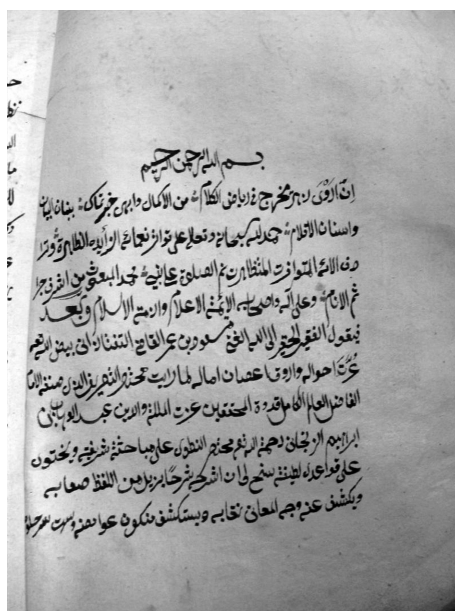 بسم الله الرحمن الرحيم
ان اروى زهر تخرج في رياض الكلام من الاكمام وابهى حبر تحاك ببنان البيان
واسنان الاقلام حمد الله سبحانه وتعالى على تواتر نعمائه الزاهرة الظاهرة وترا
دف الائه المتوافرة المتظاهرة ثم الصلوة على نبيه محمد المبعوث من اشرف جرا
ثيم الانام وعلى آله واصحابه الائمة الاعلام وازمة الاسلام وبعد
فيقول الفقير الحقير الى الله الغني مسعود بن عمر القاضي التفتازاني بيض الله تعالى
غرة احواله واورق اغصان اماله لما رايت مختصر التصريف الذي صنفه الاما
الفاضل العالم الكامل قدوة المحققين عزت الملة والدين عبد الوهاب بن
ابراهيم الزنجاني رحمة الله تعالى مختصر التطول على مباحث شريفة ويحتون
على قواعد لطيفة سنح لي ان اشرحه شرحا يزيل من اللفظ صعابه
ويكشف عنه وجه المعاني نقابه ويستكشف مكنون غوامضه